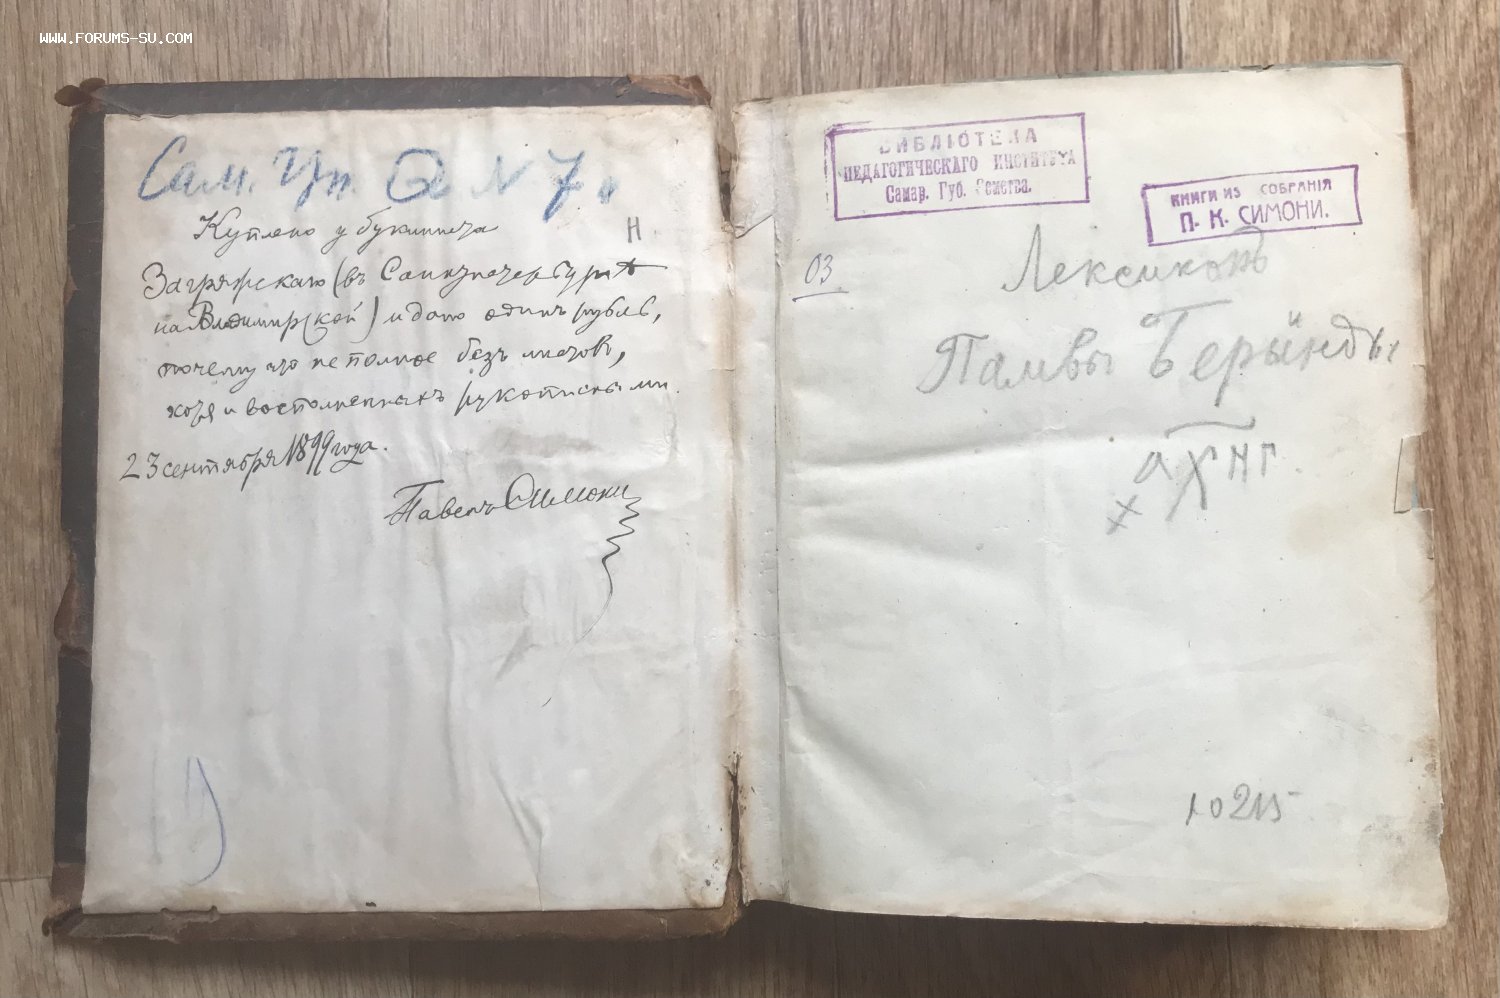 WWW.FORUMS-SU.COM
Сам. Уч. № 7.
Куплено у букиниста
Н
Загряжскаго (въ Санктпетербургѣ
на Владимирской) и дано одинъ рубль,
почему что не полное безъ листовъ,
хотя и восполненныхъ рукописными.
23 сентября 1899 года.
Павелъ Симони
БИБЛІОТЕКА
ПЕДАГОГИЧЕСКАГО ИНСТИТУТА
Самар. Губ. Земства.
КНИГИ ИЗ СОБРАНІЯ
П. К. СИМОНИ.
03
Лексиконъ
Памвы Берынды
аХНГ.
10215